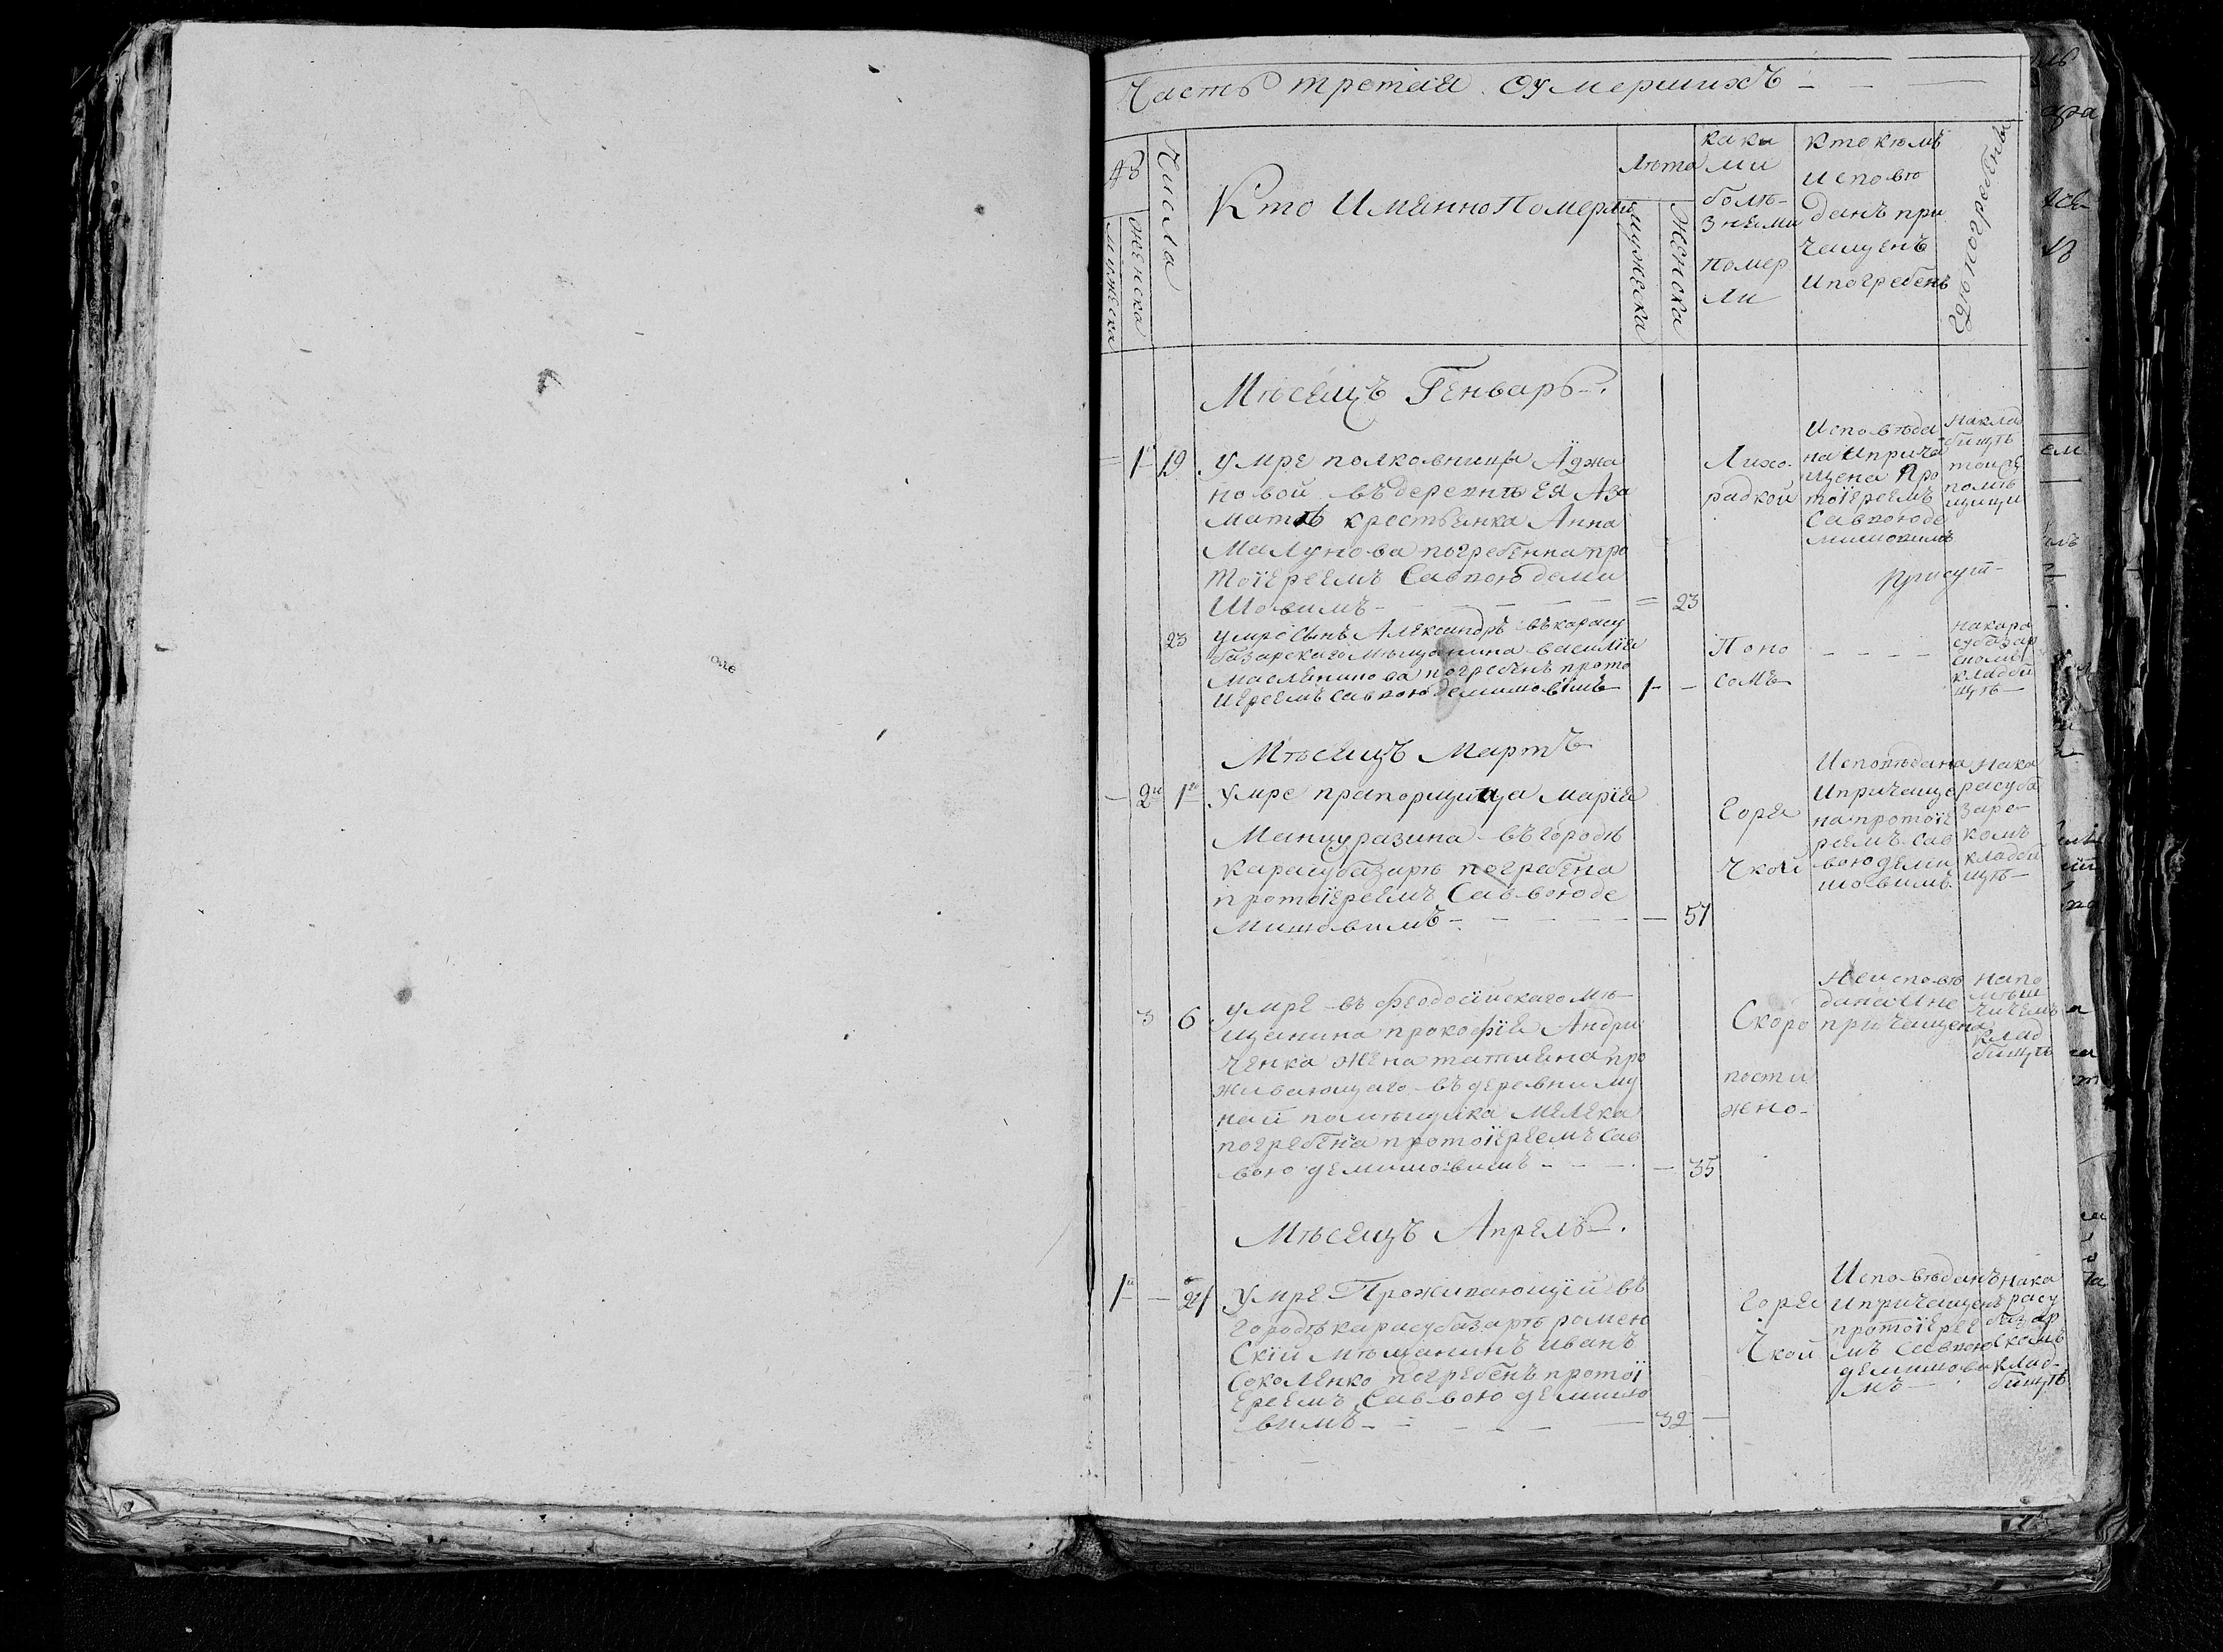 Часть третая о умершихъ
Числа
женска
мужеска
Кто имянно померли
Лета
мужеска
женска
каки
ми
боле-
знями
помер
ли
кто кемъ
испове
данъ при
чащенъ
и погребенъ
где погребены
Месяцъ Генварь
1 19
умре полковницы Аджа
новой въ деревне ея Аза
мате крестьянка Анна
Малунова погребенна про
тоїереемъ Саввою деми
шовимъ 23
Лихо-
радкой
Исповеда
на и прича
щена Про
тоїереемъ
Саввою де
мишовимъ
на клад
бище
той
поме
щици
23
умре сынъ Александръ въ карасу
базарскаго мещанина василїя
маслянинова погребенъ прото
иереемъ Саввою демишовимъ 1
Поно
сомъ
на кара
субазар
скомъ
кладби
ще
Месяцъ Мартъ
2 1
умре прапорщица марїя
Манцуразина въ городе
карасубазаре погребена
протоїереемъ Саввою де
мишовимъ 57
Горя
чкой
Исповедана
и причаще
на протоїе
реемъ Сав
вою деми
шовимъ
на ка
расуба
зарс-
комъ
кладби
ще
3 6
умре въ феодосїйскаго ме
щанина прокофїя Андрї
ченка жена татияна про
живающаго въ деревни му
най помещика мелека
погребена протоїереемъ Сав
вою демишовимъ 35
Скоро
пости
жно
Неиспове
дана и не
причащена
на по
меш
чичемъ
клад
бище
Месяцъ Апрель
1 21
умре Проживающїй въ
городе карасубазаре ромен
скїй мещанинъ иванъ
Соколенко погребенъ протої
ереемъ Саввою демишо
вимъ 32
Горя
чкой
Исповеданъ
и причащенъ
протоїерее
мъ Саввою
демишови
мъ
на ка
расу
базар
скомъ
клад-
бище